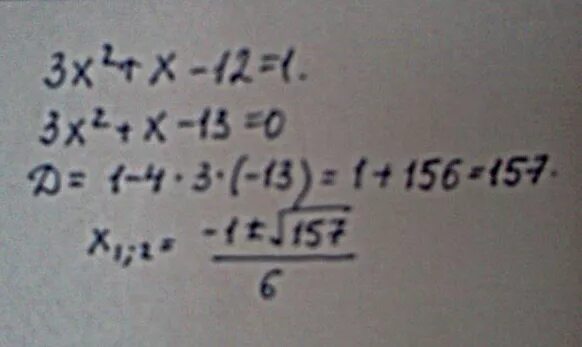 3x² + x - 12 = 1.
3x² + x - 13 = 0
Д = 1 - 4 · 3 · (-13) = 1 + 156 = 157.
x₁;₂ = (-1 ± √157) / 6